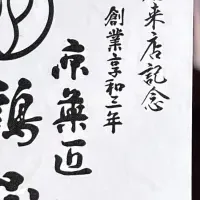 来店記念
創業享和三年
京菓匠
鶴